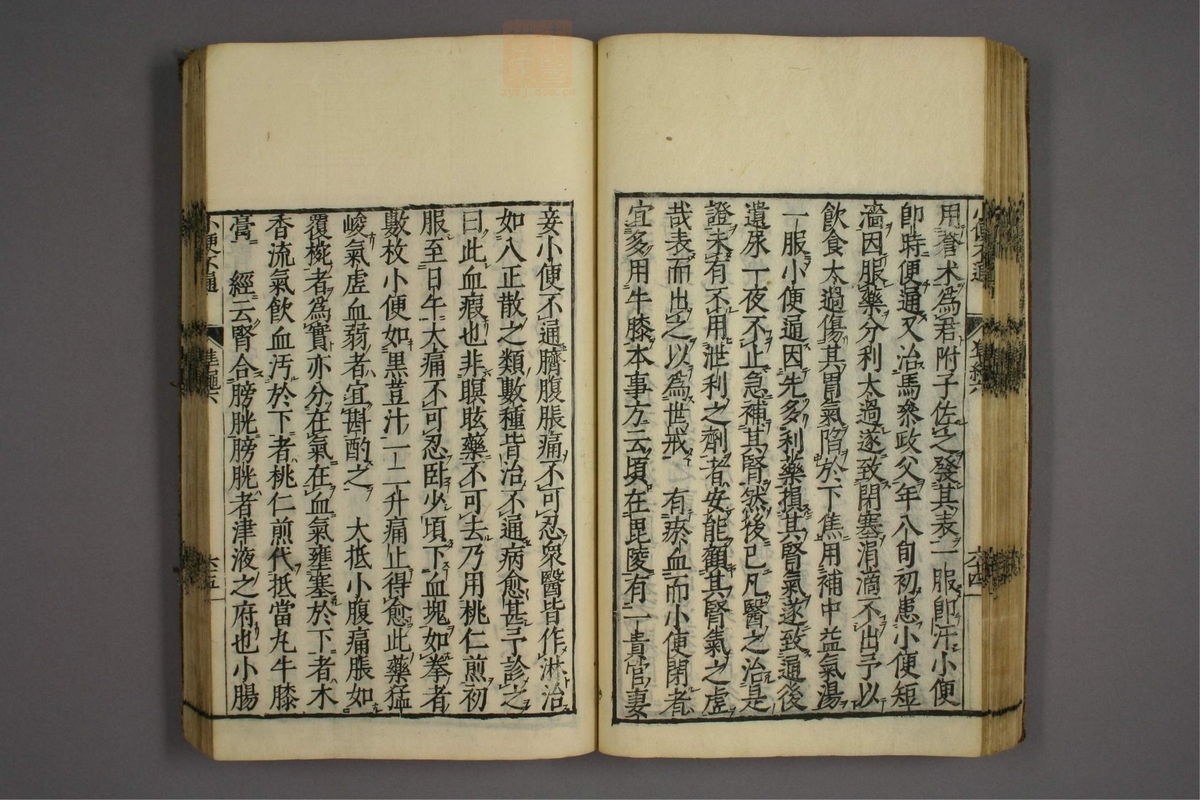 用蒼朮為君附子佐之發其表一服即汗小便
即時便通又治馬參政父年八旬初患小便短
濇因服藥分利太過遂致閉塞涓滴不出予以
飲食太過傷其胃氣陷於下焦用補中益氣湯
一服小便通因先多利藥損其腎氣遂致通後
遺尿一夜不止急補其腎然後已凡醫之治是
證未有不用泄利之劑者安能顧其腎氣之虛
哉表而出之以為世戒　有瘀血而小便閉者
宜多用牛膝本事方云頃在毘陵有一貴官妻
小便不通
六十四
妾小便不通臍腹脹痛不可忍眾醫皆作淋治
如八正散之類數種皆治不通病愈甚予診之
曰此血瘕也非瞑眩藥不可去乃用桃仁煎初
服至日午大痛不可忍臥少頃下血塊如拳者
數枚小便如黑豆汁一二升痛止得愈此藥猛
峻氣虛血弱者宜斟酌之　大抵小腹痛脹如
覆椀者為實亦分在氣在血氣壅塞於下者木
香流氣飲血汚於下者桃仁煎代抵當丸牛膝
膏　經云腎合膀胱膀胱者津液之府也小腸
小便不通
準繩六
六十五